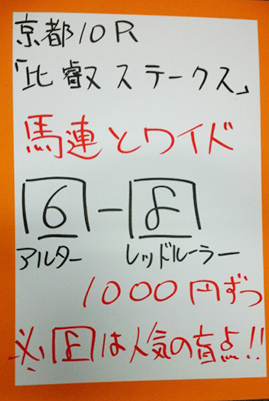 京都10R
「比叡ステークス」
馬連とワイド
6-8
アルター レッドルーラー
1000円ずつ
※8は人気の盲点!!